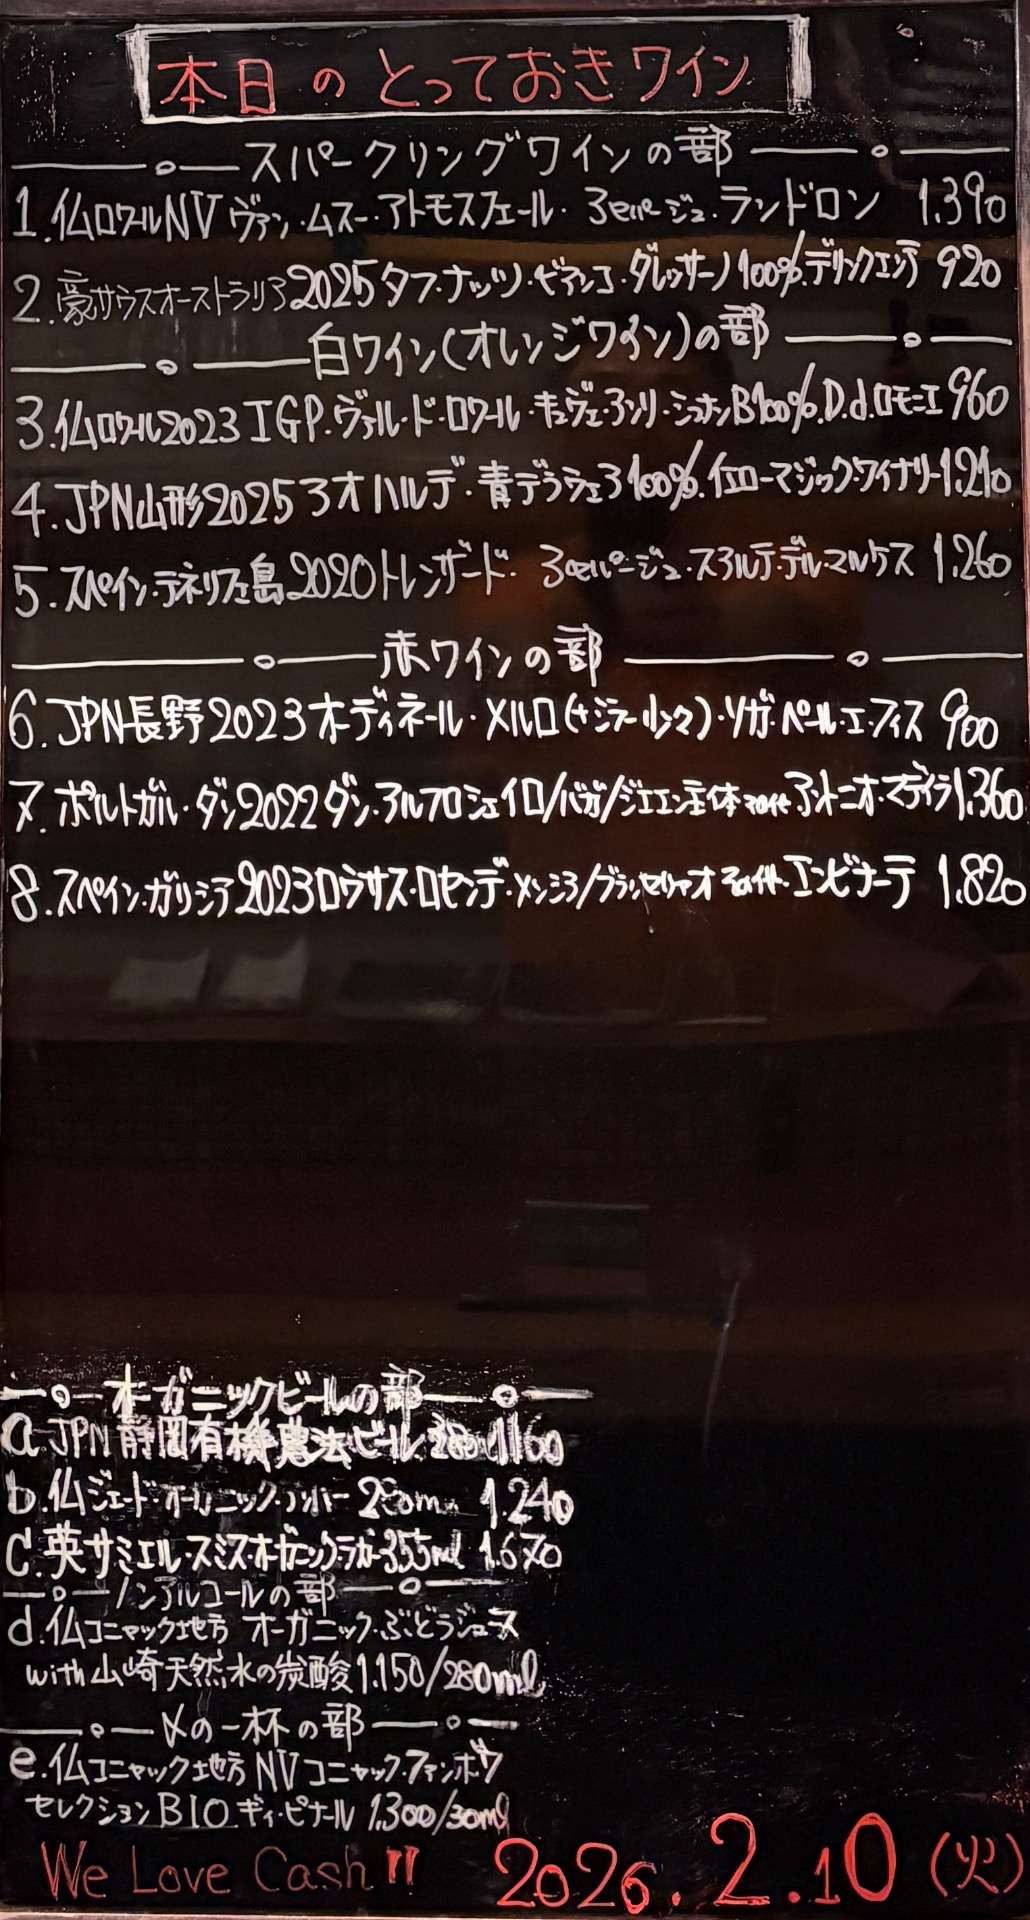 本日のとっておきワイン
スパークリングワインの部
1.仏ロワールNVヴァン・ムスー・アトモスフェール・3セパージュ・ランドロン 1.390
2.豪サウスオーストラリア2025タフ・ナッツ・ビアンコ・ダレッサーノ100%.デリンクエンテ 920
白ワイン(オレンジワイン)の部
3.仏ロワール2023IGP.ヴァル・ド・ロワール・キュヴェ・アンリ・シュナンB100%.D.d.ロモニエ 960
4.JPN山形2025ヨオハルデ・青デラウェア100%.イエローマジック・ワイナリー1.210
5.スペイン・テネリフェ島2020トレンザード・3セパージュ・スアルテ・デル・マルケス 1.260
赤ワインの部
6.JPN長野2023オーディネール・メルロ(+ジラー・リンク)・ソガ・ペール・エ・フィス 900
7.ポルトガル・ダン2022ダン・アルフロシェイロ/バガ/ジャエン主体 アントニオ・マデイラ1.360
8.スペイン・ガリシア2023ロウサス・ロセンデ・メンシア/ブランセリャオ エンビナーテ 1.820
オーガニックビールの部
a.JPN静岡有機農法ビール 1160
b.仏ジェード・オーガニック・アンバー 250ml 1.240
c.英サミエル・スミス・オーガニック・ラガー355ml 1.670
ノンアルコールの部
d.仏コニャック地方 オーガニック・ぶどうジュース
with山崎天然水の炭酸1.150/280ml
〆の一杯の部
e.仏コニャック地方NVコニャック・ファンボワ
セレクションBIO.ギィ・ピナール 1.300/30ml
We Love Cash!! 2026.2.10(火)